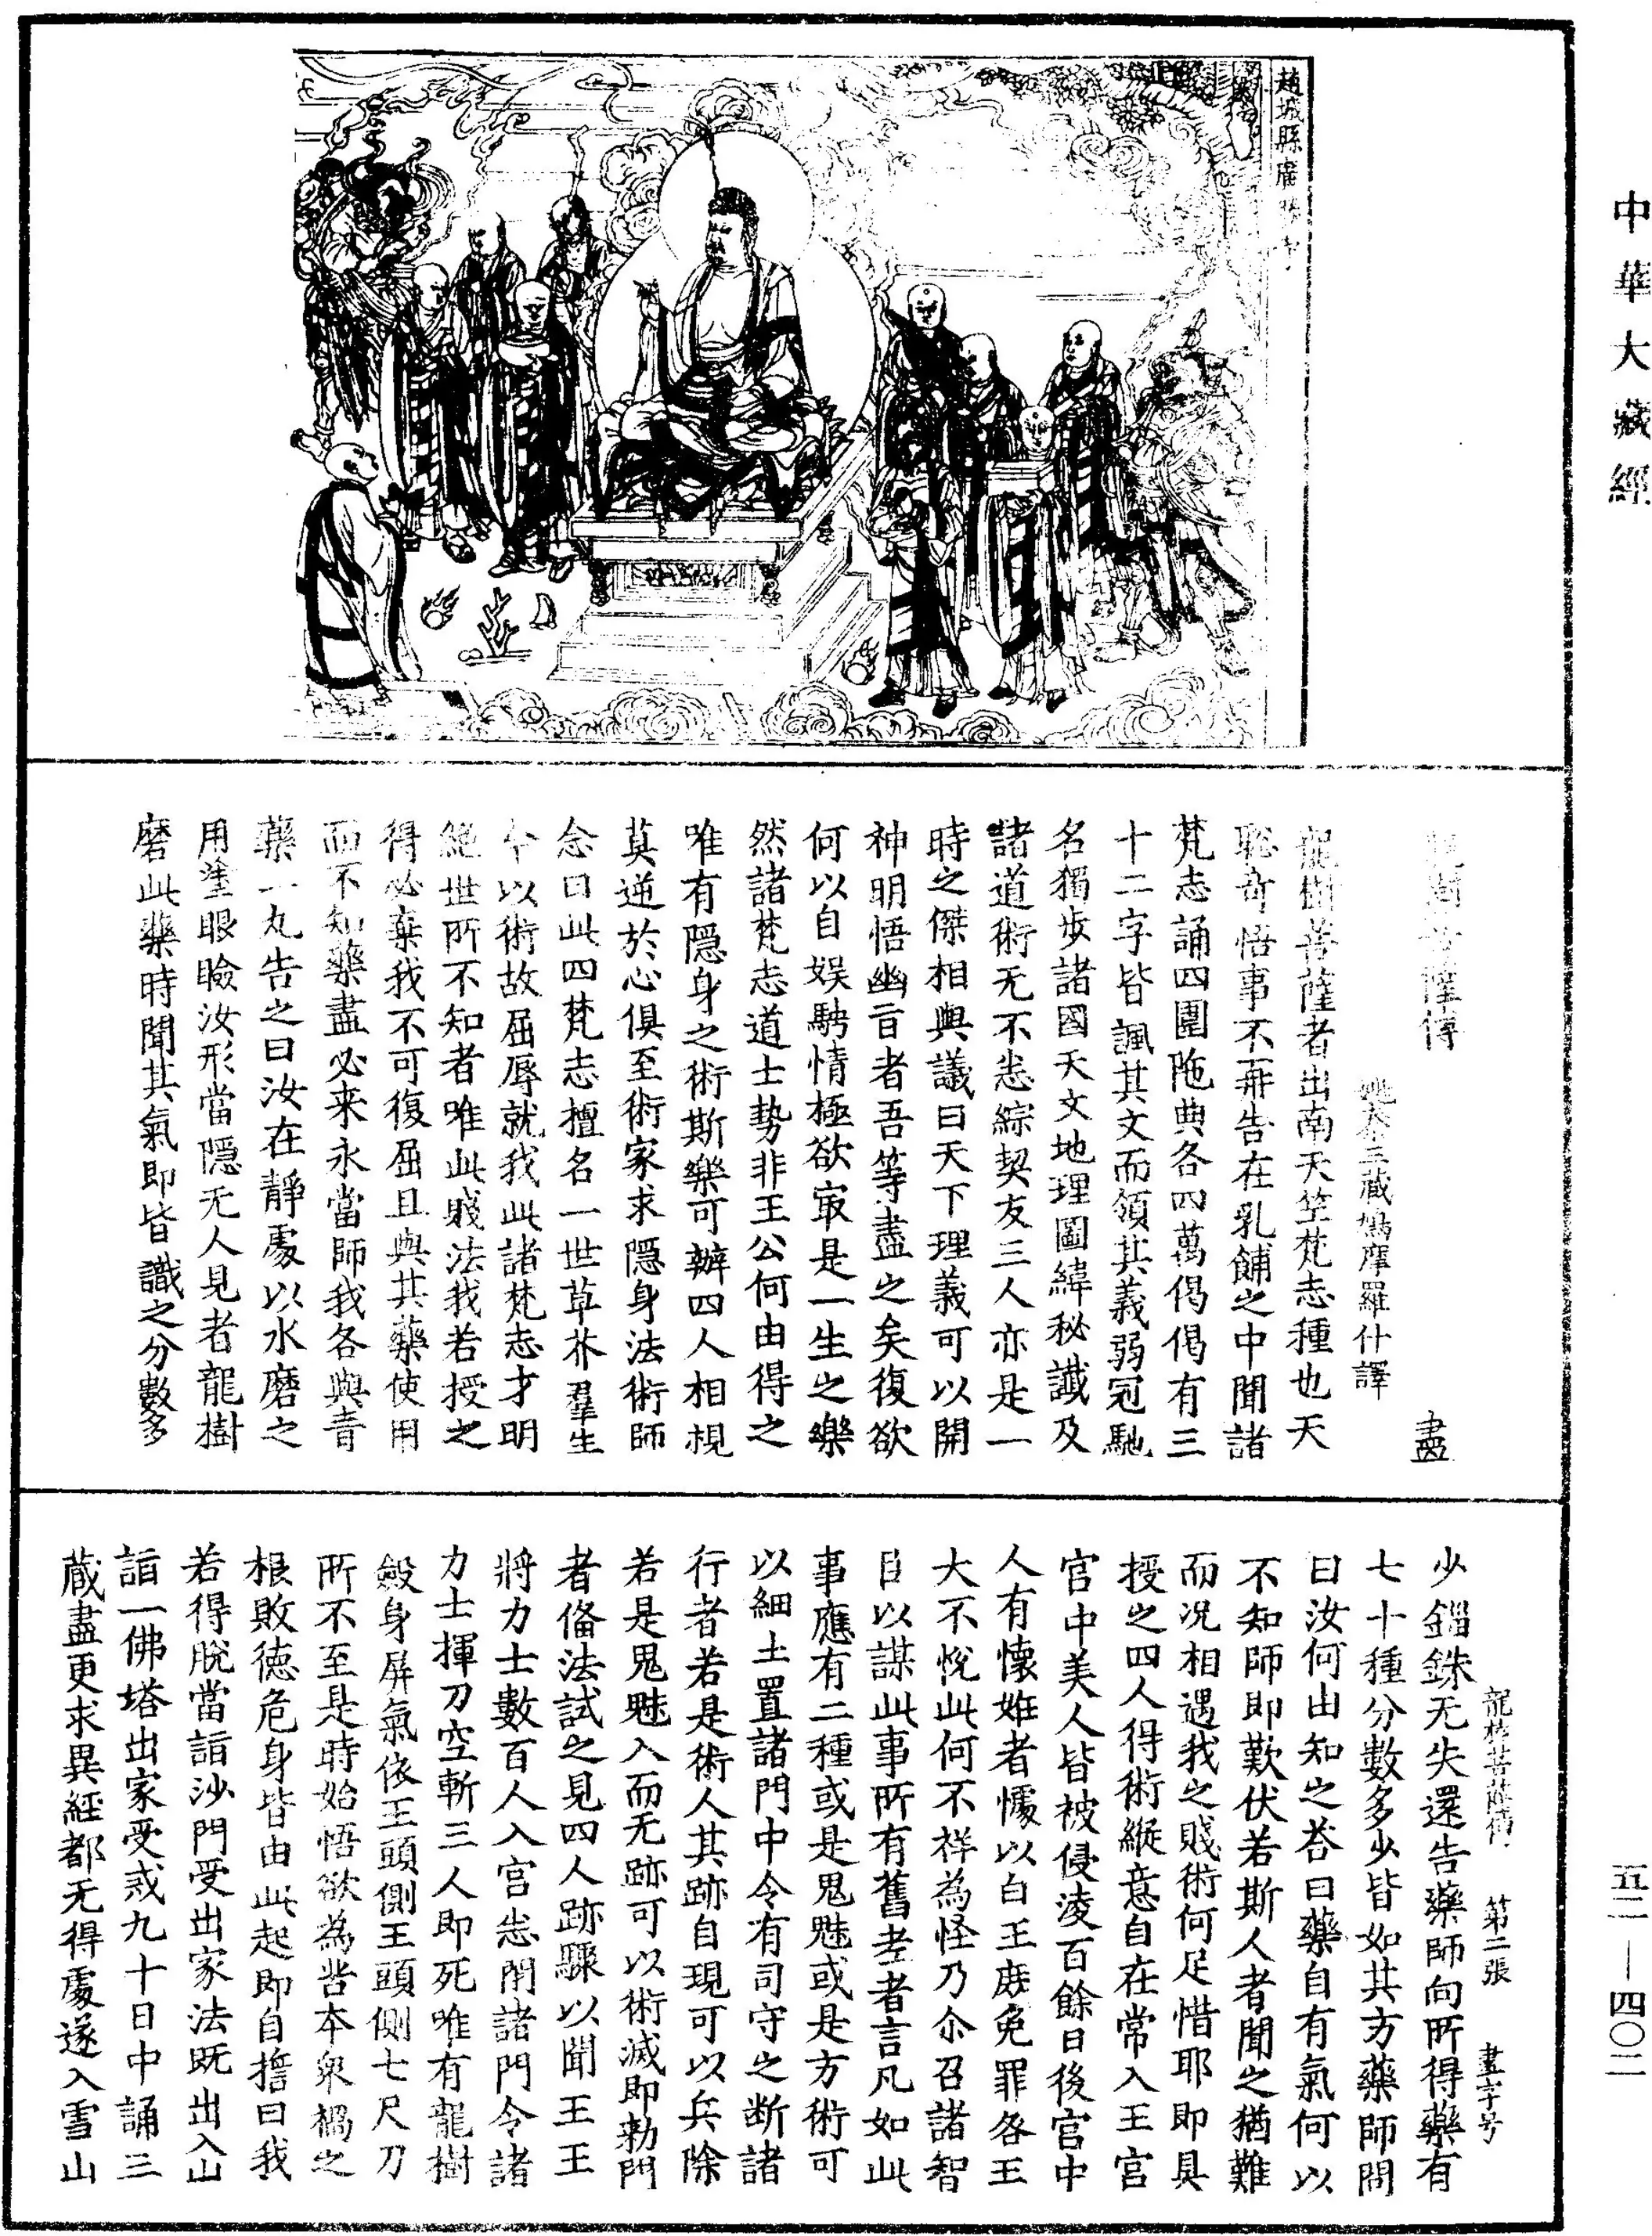 中華大藏經
五二—四〇二
趙城縣廣勝寺
龍樹菩薩傳 盡
姚秦三藏鳩摩羅什譯
龍樹菩薩者出南天竺梵志種也天
聦奇悟事不再告在乳餔之中聞諸
梵志誦四圍陁典各四萬偈偈有三
十二字皆諷其文而領其義弱冠馳
名獨步諸國天文地理圖緯秘讖及
諸道術无不悉綜契友三人亦是一
時之傑相與議曰天下理義可以開
神明悟幽旨者吾等盡之矣復欲
何以自娱騁情極欲冣是一生之樂
然諸梵志道士勢非王公何由得之
唯有隱身之術斯樂可辦四人相視
莫逆於心俱至術家求隱身法術師
念曰此四梵志擅名一世草芥羣生
今以術故屈辱就我此諸梵志才明
絕世所不知者唯此賤法我若授之
得必棄我不可復屈且與其藥使用
而不知藥盡必来永當師我各與青
藥一丸告之曰汝在靜處以水磨之
用塗眼瞼汝形當隱无人見者龍樹
磨此藥時聞其氣即皆識之分數多
龍樹菩薩傳 第二張 盡字号
少錙銖无失還告藥師向所得藥有
七十種分數多少皆如其方藥師問
曰汝何由知之荅曰藥自有氣何以
不知師即歎伏若斯人者聞之猶難
而况相遇我之賤術何足惜耶即具
授之四人得術縱意自在常入王宮
宮中美人皆被侵淩百餘日後宮中
人有懷妊者懅以白王庶免罪咎王
大不悅此何不祥為怪乃尒召諸智
臣以謀此事所有舊老者言凡如此
事應有二種或是鬼魅或是方術可
以細土置諸門中令有司守之断諸
行者若是術人其跡自現可以兵除
若是鬼魅入而无跡可以術滅即勑門
者俻法試之見四人跡驟以聞王王
將力士數百人入宮悉閇諸門令諸
力士揮刀空斬三人即死唯有龍樹
斂身屏氣依王頭側王頭側七尺刀
所不至是時始悟欲為苦本衆禍之
根敗德危身皆由此起即自誓曰我
若得脫當詣沙門受出家法既出入山
詣一佛塔出家受戒九十日中誦三
蔵盡更求異經都无得處遂入雪山